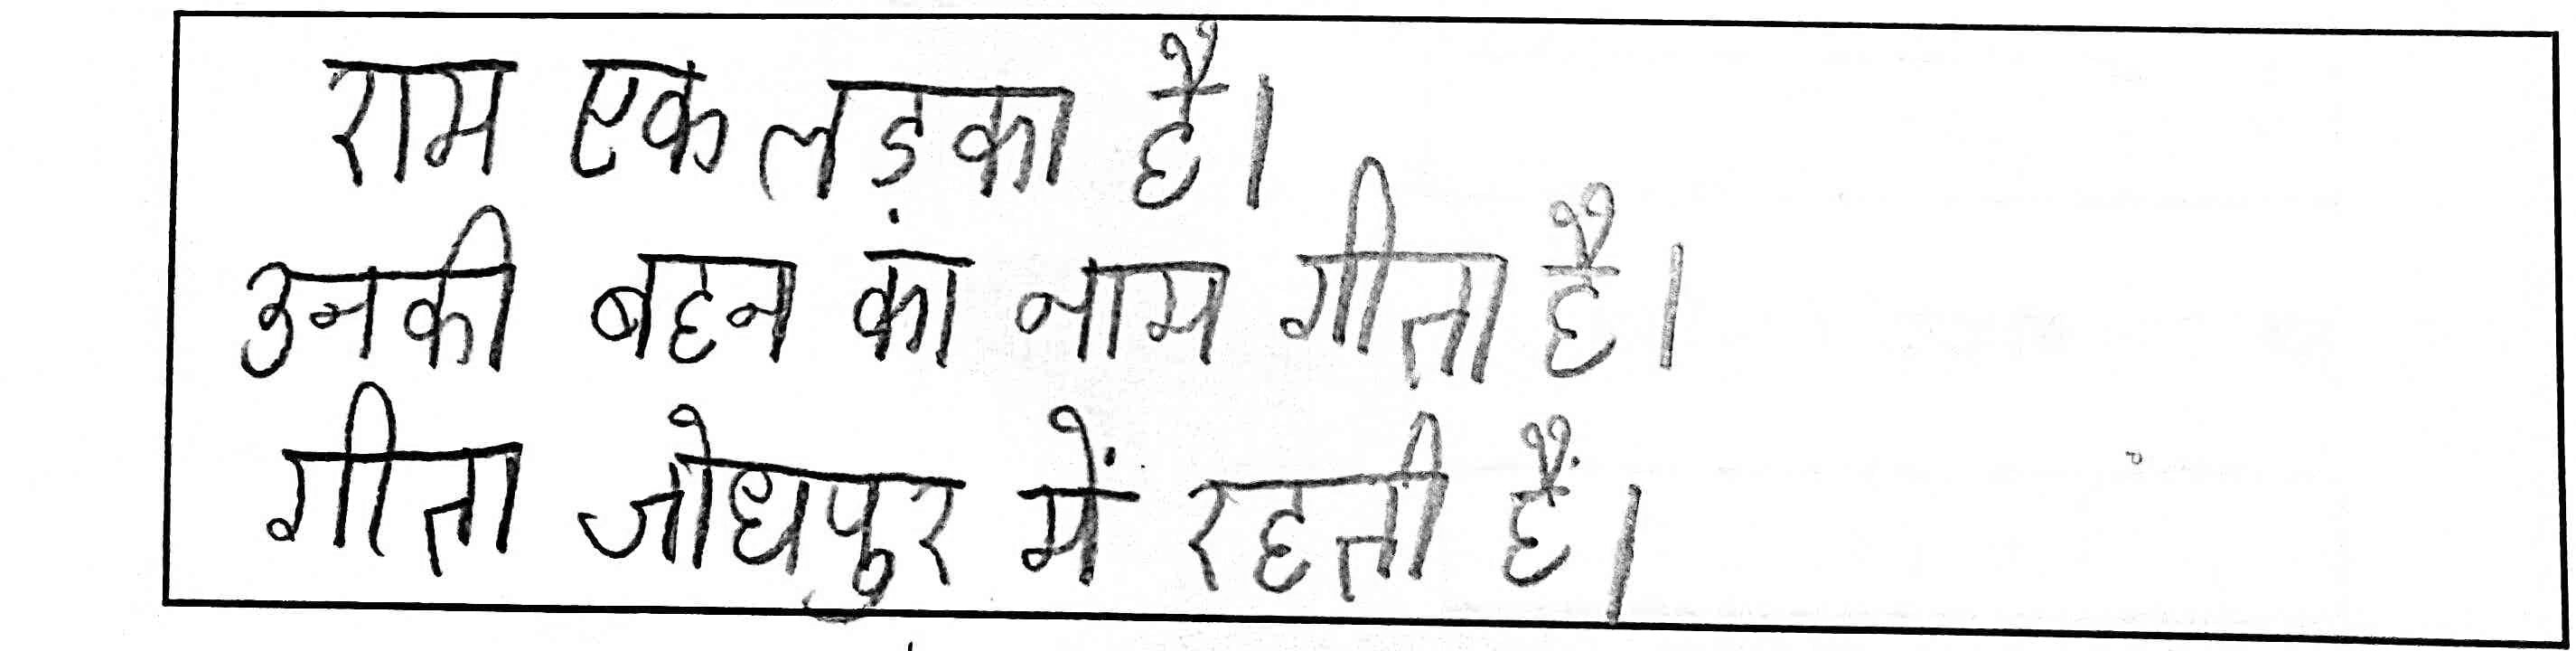 राम एक लड़का है।
उनकी बहन का नाम गीता है।
गीता जोधपुर में रहती हैं।